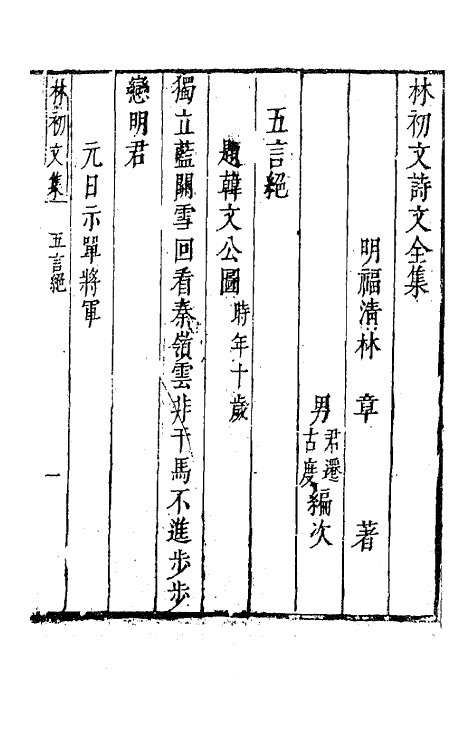 林初文詩文全集
明福清林章著
男君遷古度編次
五言絕
題韓文公圖時年十歲
獨立藍關雪回看秦嶺雲非干馬不進步步
戀明君
元日示單將軍
林初文集 五言絕 一